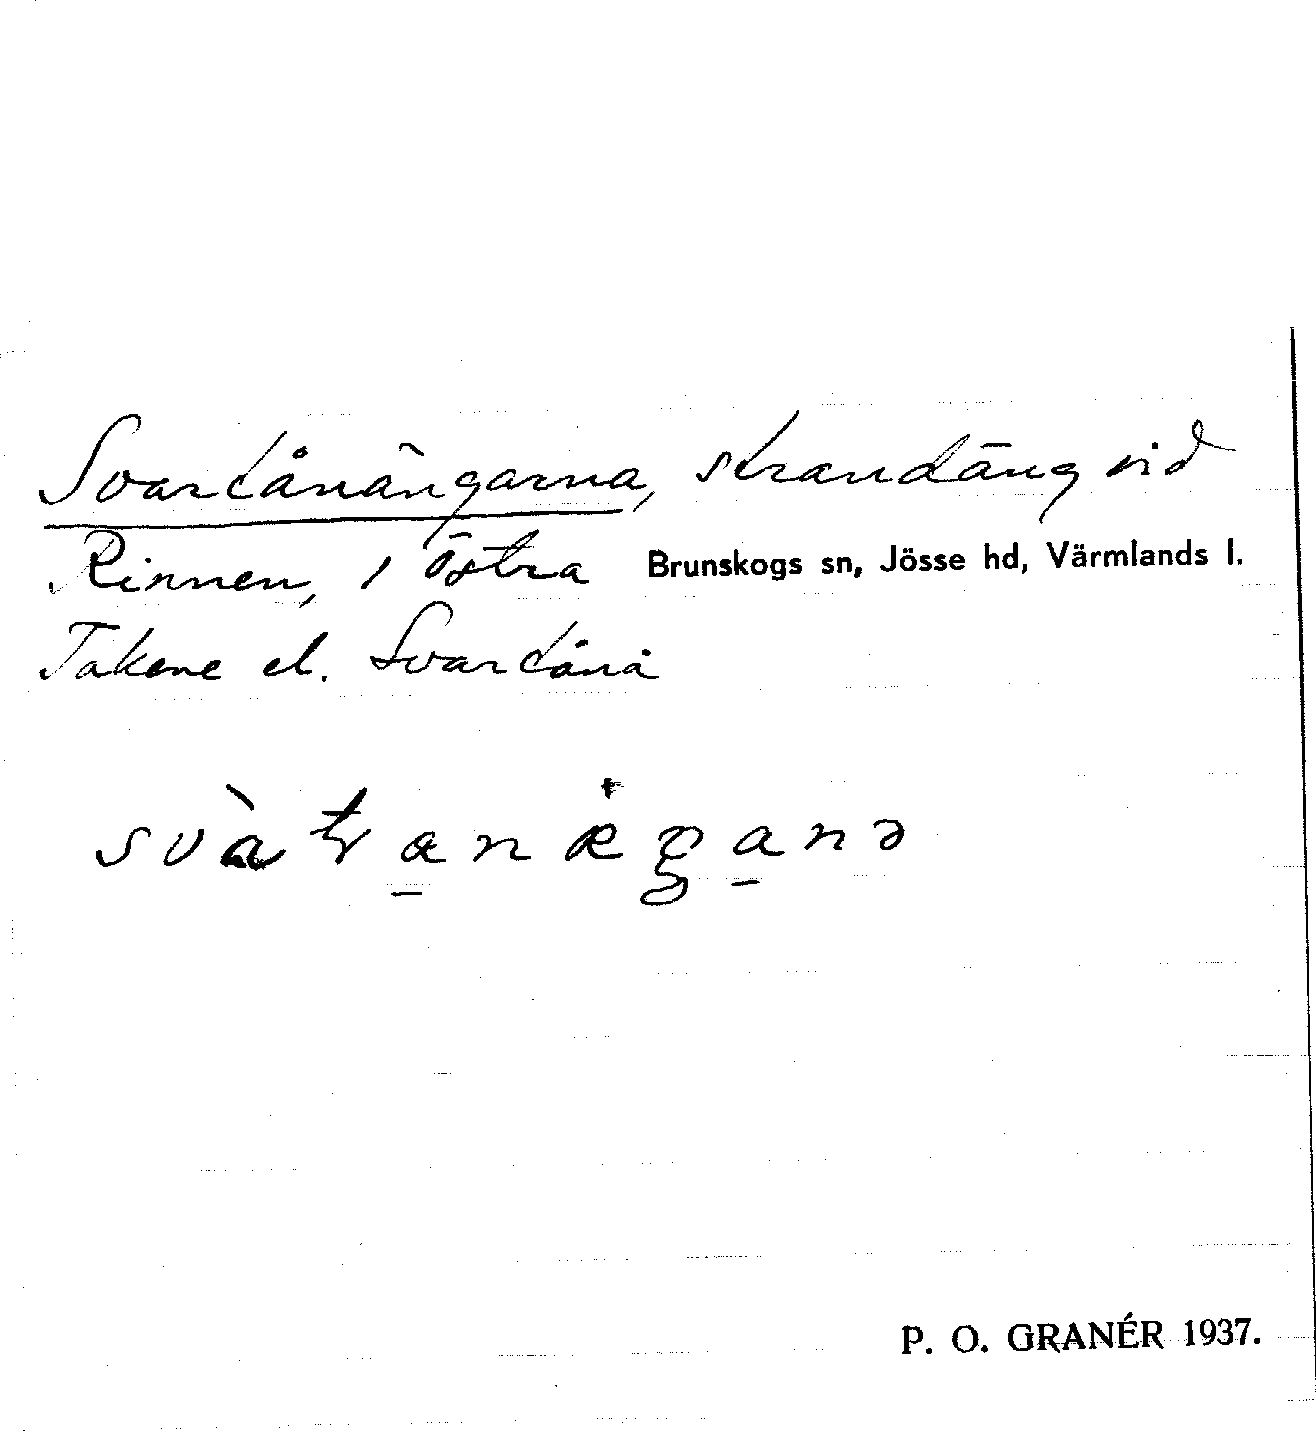 Svartånängarna, strandäng vid
Rinnen, i Östra Brunskogs sn, Jösse hd, Värmlands l.
Takene el. Svartånä
svàtranægana
P. O. GRANÉR 1937.